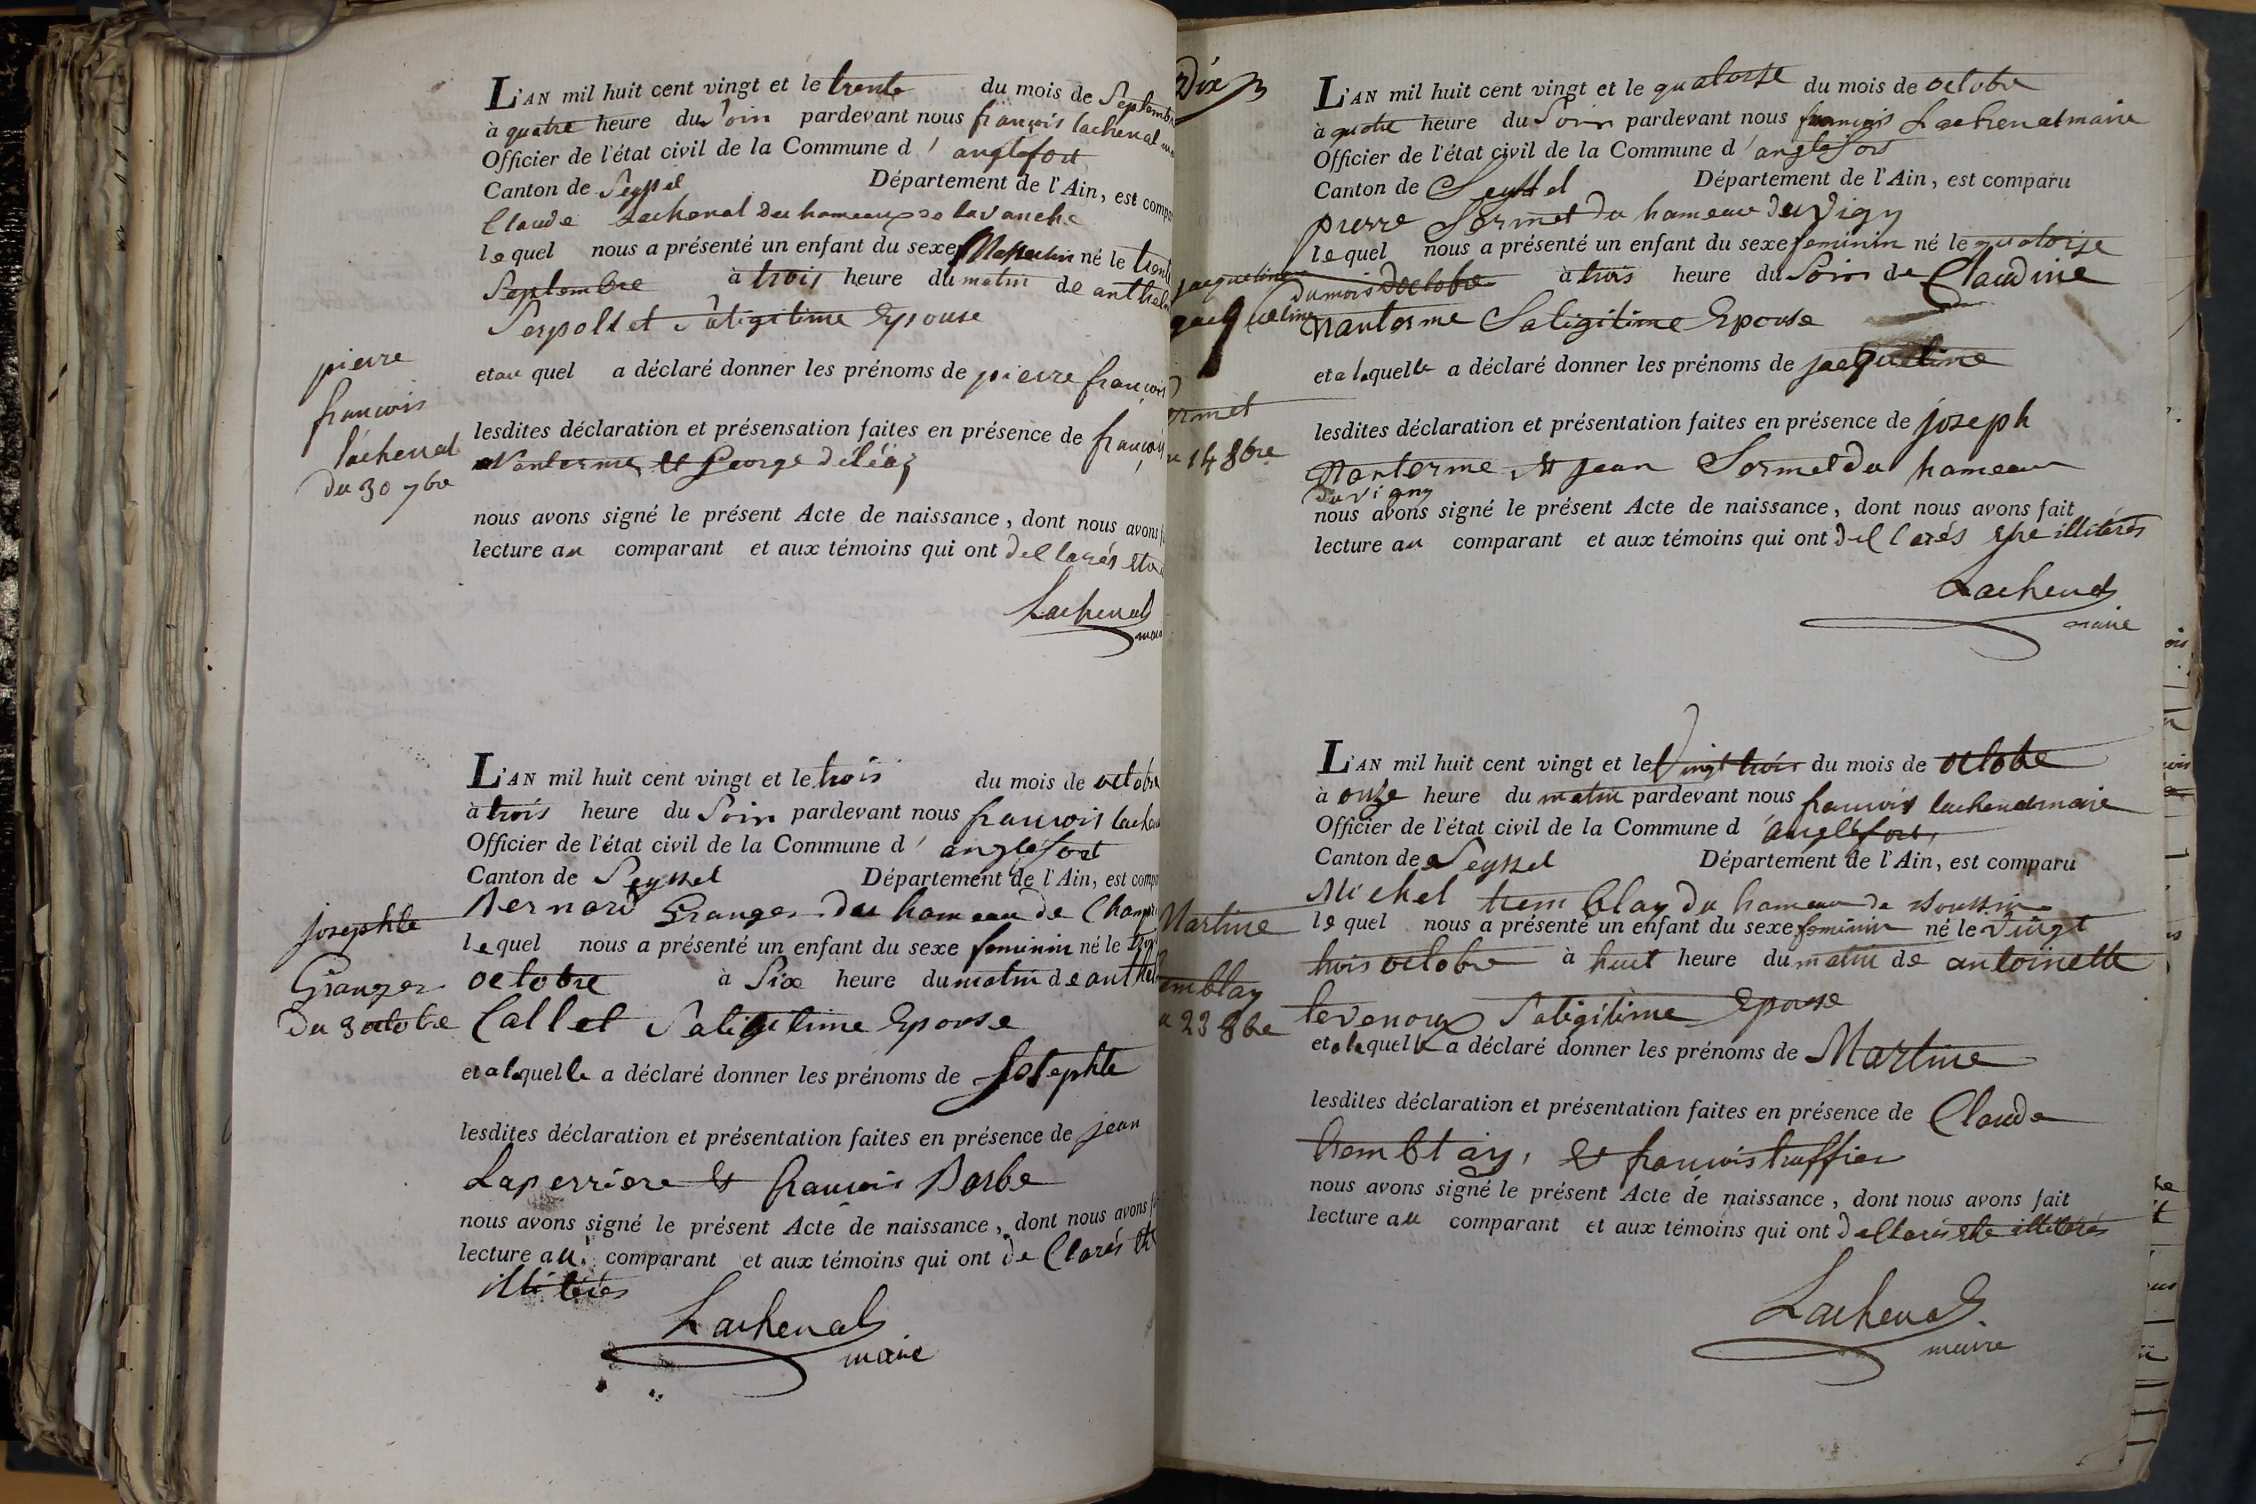 L'AN mil huit cent vingt et le trente du mois de Septembre
à quatre heure du Soir pardevant nous françois lachenal
Officier de l'état civil de la Commune d' anglefort
Canton de Seyssel Département de l'Ain, est compa
Claude Lachenal du hameaux de lavanche
le quel nous a présenté un enfant du sexe Masculin né le trente
Septembre à trois heure du matin de anthel
Perpollet Saligitime Epouse
pierre
françois
lachenal
du 30 7bre
et au quel a déclaré donner les prénoms de pierre françois
lesdites déclaration et présensation faites en présence de françois
Nanterme et George déléaz
nous avons signé le présent Acte de naissance, dont nous avons f
lecture au comparant et aux témoins qui ont dellarés
Lachenal
maire
L'AN mil huit cent vingt et le trois du mois de octobre
à trois heure du Soir pardevant nous françois lachenal
Officier de l'état civil de la Commune d' anglefort
Canton de Seyssel Département de l'Ain, est compa
Bernard Granger du hameau de Champ
josephte
Granger
Du 3 octobre
le quel nous a présenté un enfant du sexe feminin né le trois
octobre à Six heure du matin de anthel
Callet Saligitime Epouse
et a laquelle a déclaré donner les prénoms de Josephte
lesdites déclaration et présentation faites en présence de jean
Laperriere & françois Barbe
nous avons signé le présent Acte de naissance, dont nous avons f
lecture au comparant et aux témoins qui ont de Clarés
illitérés
Lachenal
maire
Dix
L'AN mil huit cent vingt et le quatorse du mois de octobre
à quatre heure du Soir pardevant nous françois Lachenal maire
Officier de l'état civil de la Commune d' anglefort
Canton de Seyssel Département de l'Ain, est comparu
pierre Sermet du hameau du Vigny
le quel nous a présenté un enfant du sexe feminin né le quatorse
du mois d'octobre à trois heure du Soir de Claudine
Nanterme Saligitime Epouse
jacqueline
jacqueline
ermet
14 8bre
et a laquelle a déclaré donner les prénoms de jacqueline
lesdites déclaration et présentation faites en présence de joseph
Nanterme, & jean Sermet du hameau
du vigny
nous avons signé le présent Acte de naissance, dont nous avons fait
lecture au comparant et aux témoins qui ont dellarés etre illitérés
Lachenal
maire
L'AN mil huit cent vingt et le Vingt trois du mois de octobe
à onze heure du matin pardevant nous françois lachenal maire
Officier de l'état civil de la Commune d' anglefort
Canton de Seyssel Département de l'Ain, est comparu
Michel tremblay du hameau de
Martine
emblay
23 8bre
le quel nous a présenté un enfant du sexe feminin né le Vingt
trois octobre à huit heure du matin de antoinette
levenoux Saligitime Epouse
et a laquelle a déclaré donner les prénoms de Martine
lesdites déclaration et présentation faites en présence de Claude
tremblay, & françois truffier
nous avons signé le présent Acte de naissance, dont nous avons fait
lecture au comparant et aux témoins qui ont dellarés etre illitérés
Lachenal
maire